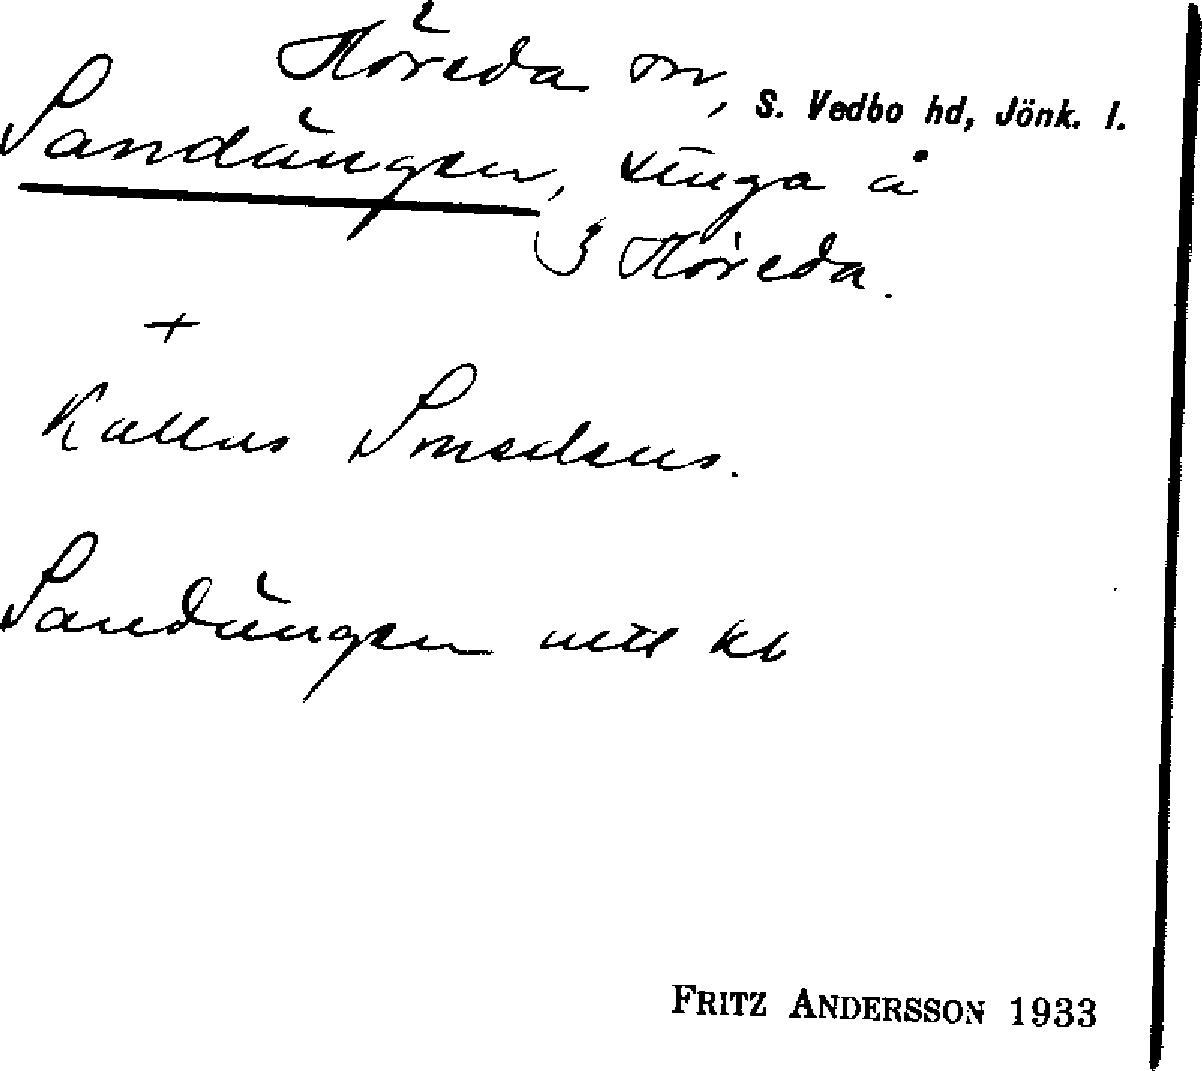 Höreda sn, S. Vedbo hd, Jönk. l.
Sandängen, änga å
3 Höreda.
+
Kallas Smedens.
Sandängen
FRITZ ANDERSSON 1933